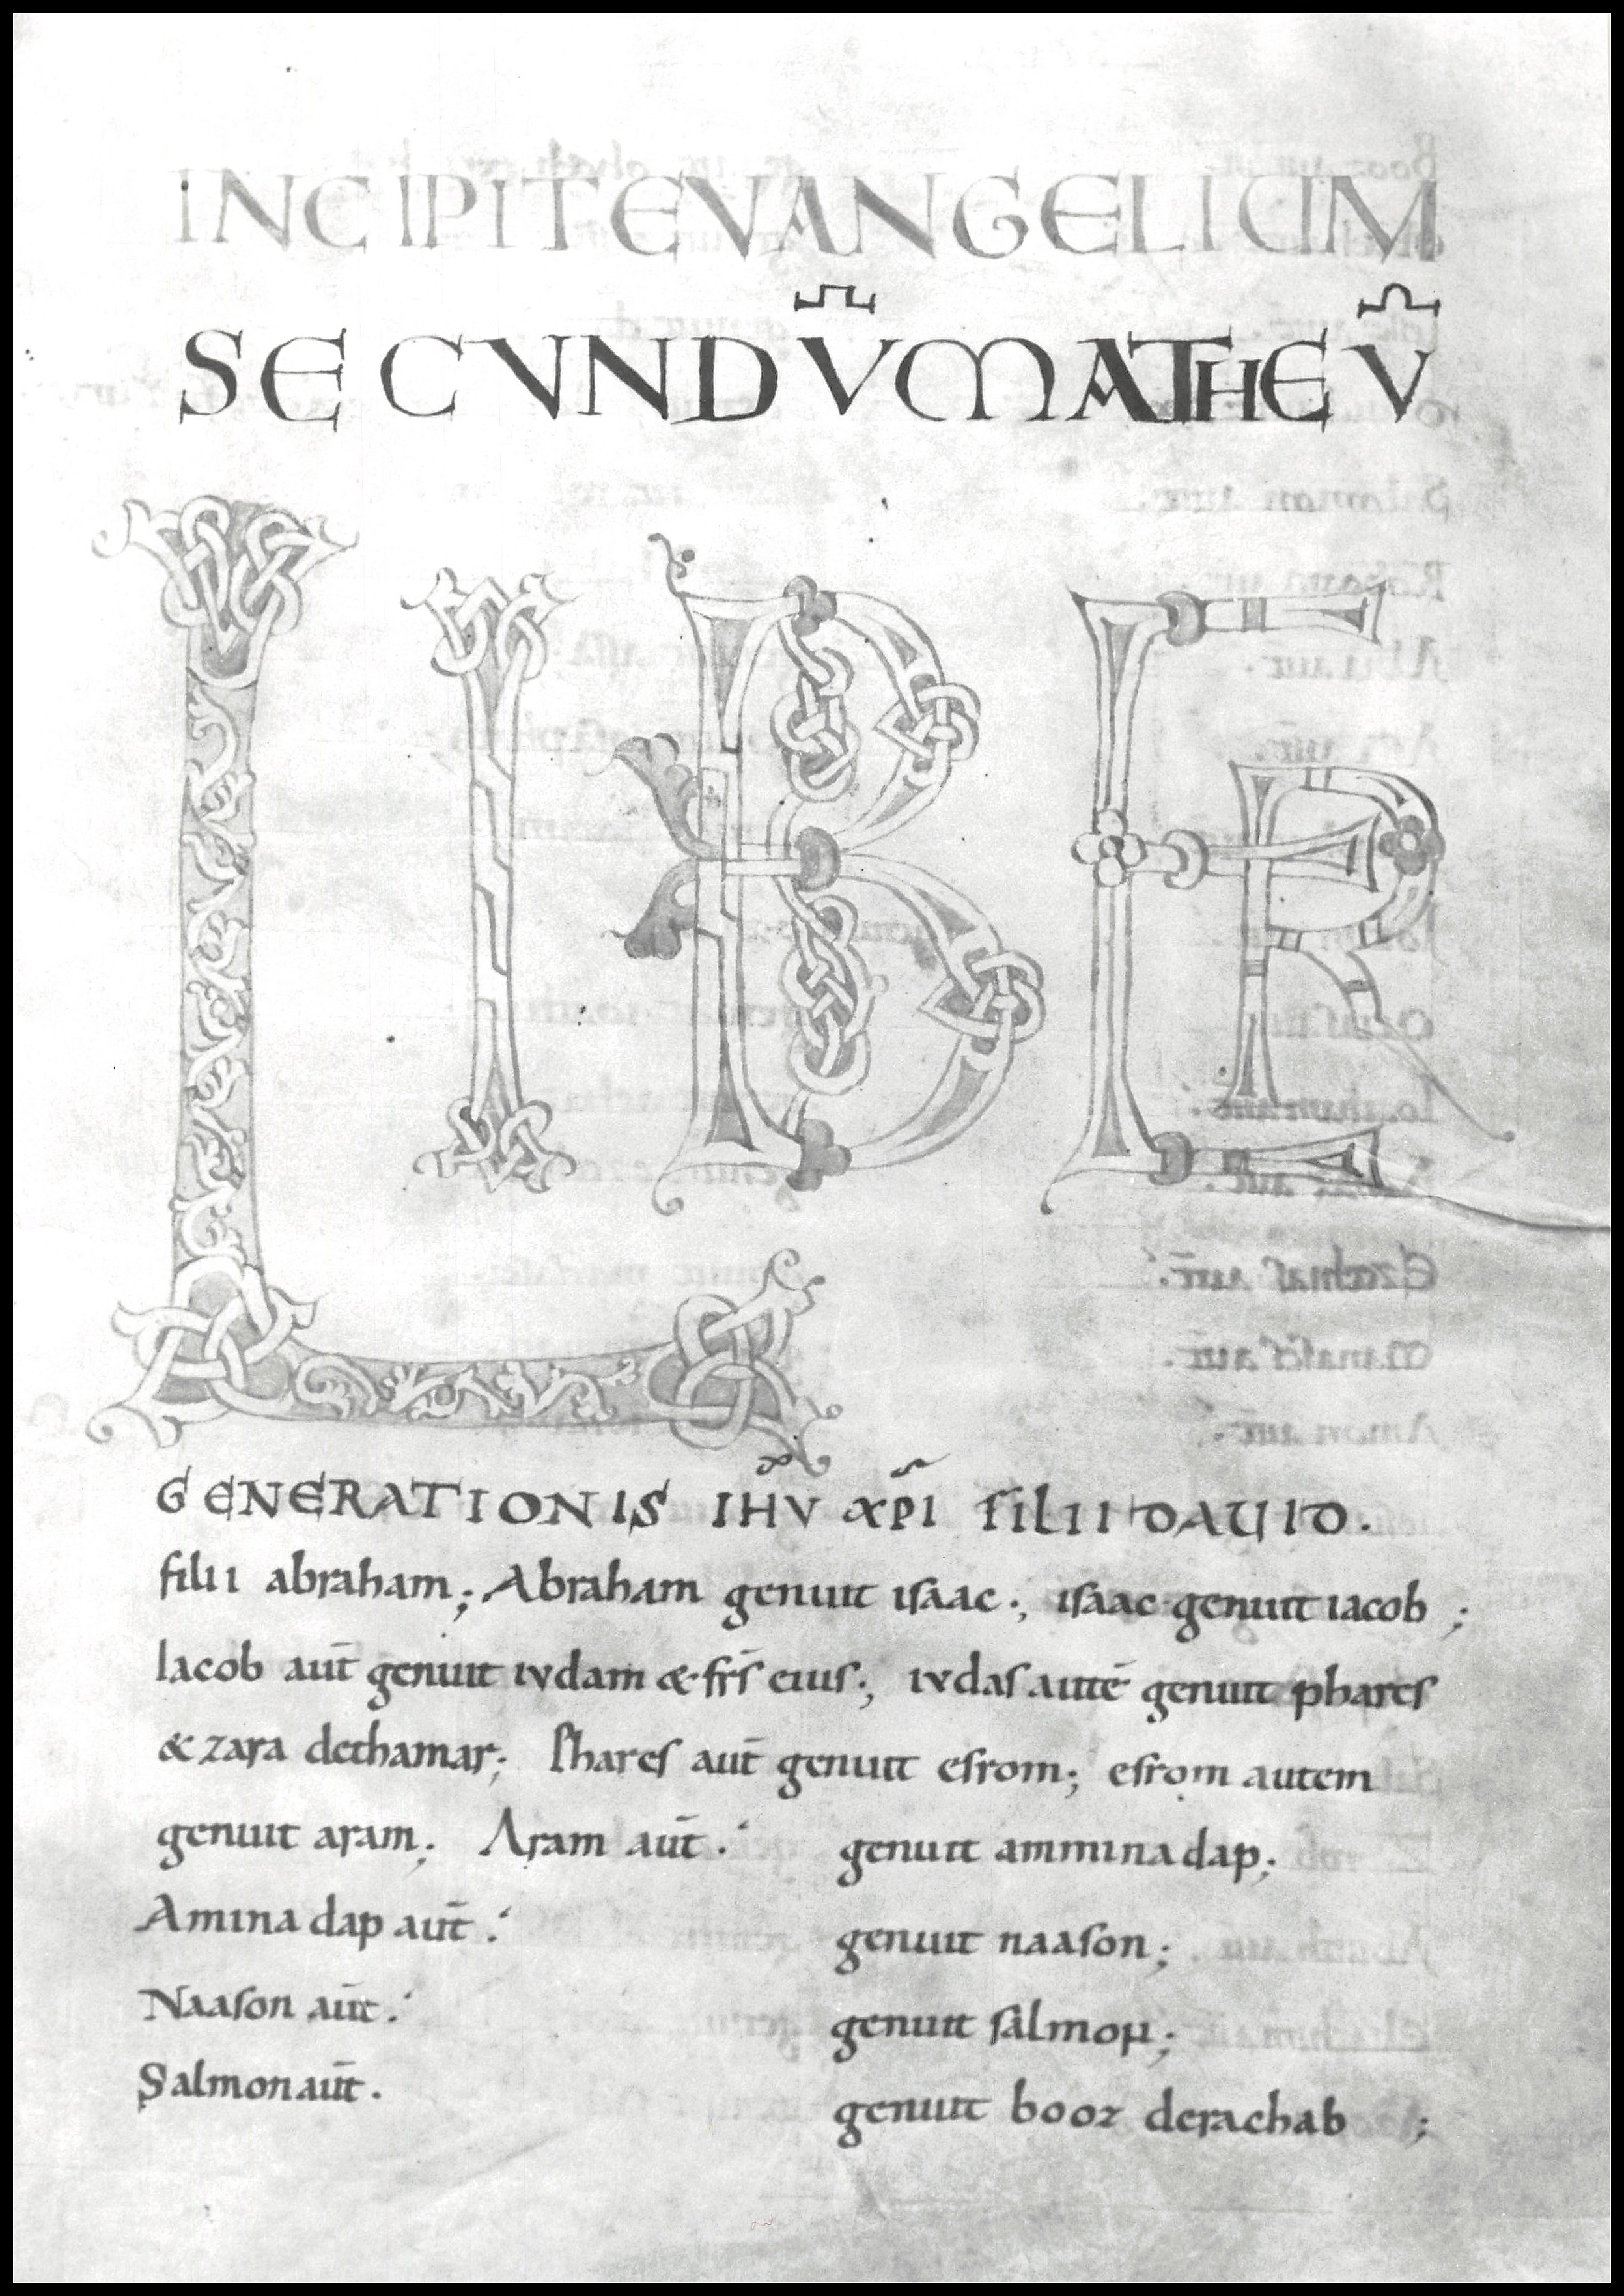 INCIPIT EVANGELIUM
SECVNDV̄ MATHEV̄
LIBER
GENERATIONIS IHV̄ XP̄I FILII DAUID.
filii abraham; Abraham genuit isaac; isaac genuit iacob;
Iacob aut̄ genuit ivdam & fr̄s eius; ivdas autē genuit phares
& zara dethamar; Phares aut̄ genuit esrom; esrom autem
genuit aram; Aram aut̄ genuit amminadap;
Aminadap aut̄ genuit naason;
Naason aut̄ genuit salmon;
Salmon aut̄. genuit booz derachab;